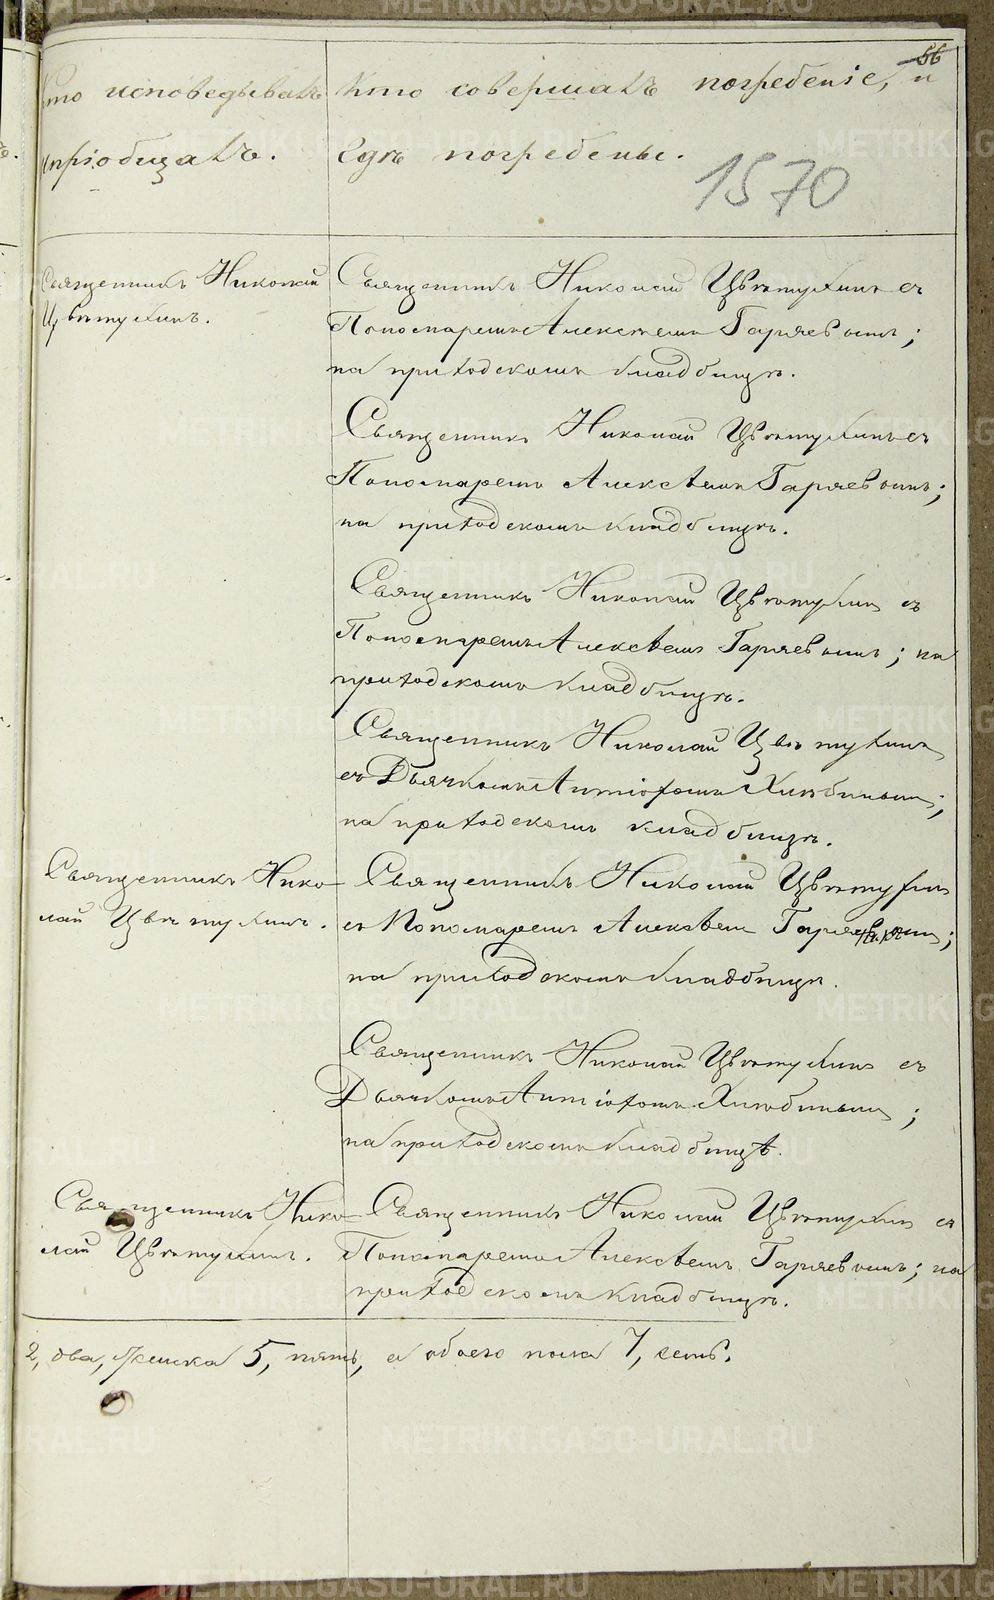 56
Кто исповѣдывалъ
и пріобщалъ.
Кто совершалъ погребеніе, и
гдѣ погребены.
1570
Священникъ Николай
Цвѣтухинъ.
Священникъ Николай Цвѣтухинъ съ
Пономаремъ Алексѣемъ Гаряевымъ;
на приходскомъ кладбищѣ.
Священникъ Николай Цвѣтухинъ съ
Пономаремъ Алексѣемъ Гаряевымъ;
на приходскомъ кладбищѣ.
Священникъ Николай Цвѣтухинъ съ
Пономаремъ Алексѣемъ Гаряевымъ; на
приходскомъ кладбищѣ.
Священникъ Николай Цвѣтухинъ
съ Дьячкомъ Антіохомъ Хлюбинымъ;
на приходскомъ кладбищѣ.
Священникъ Нико-
лай Цвѣтухинъ.
Священникъ Николай Цвѣтухинъ
съ Пономаремъ Алексѣемъ Гаряевымъ;
на приходскомъ кладбищѣ.
Священникъ Николай Цвѣтухинъ съ
Дьячкомъ Антіохомъ Хлюбинымъ;
на приходскомъ кладбищѣ.
Священникъ Нико-
лай Цвѣтухинъ.
Священникъ Николай Цвѣтухинъ съ
Пономаремъ Алексѣемъ Гаряевымъ; на
приходскомъ кладбищѣ.
2, два, женска 5, пять, а обоего пола 7, семь.
METRIKI.GASO-URAL.RU